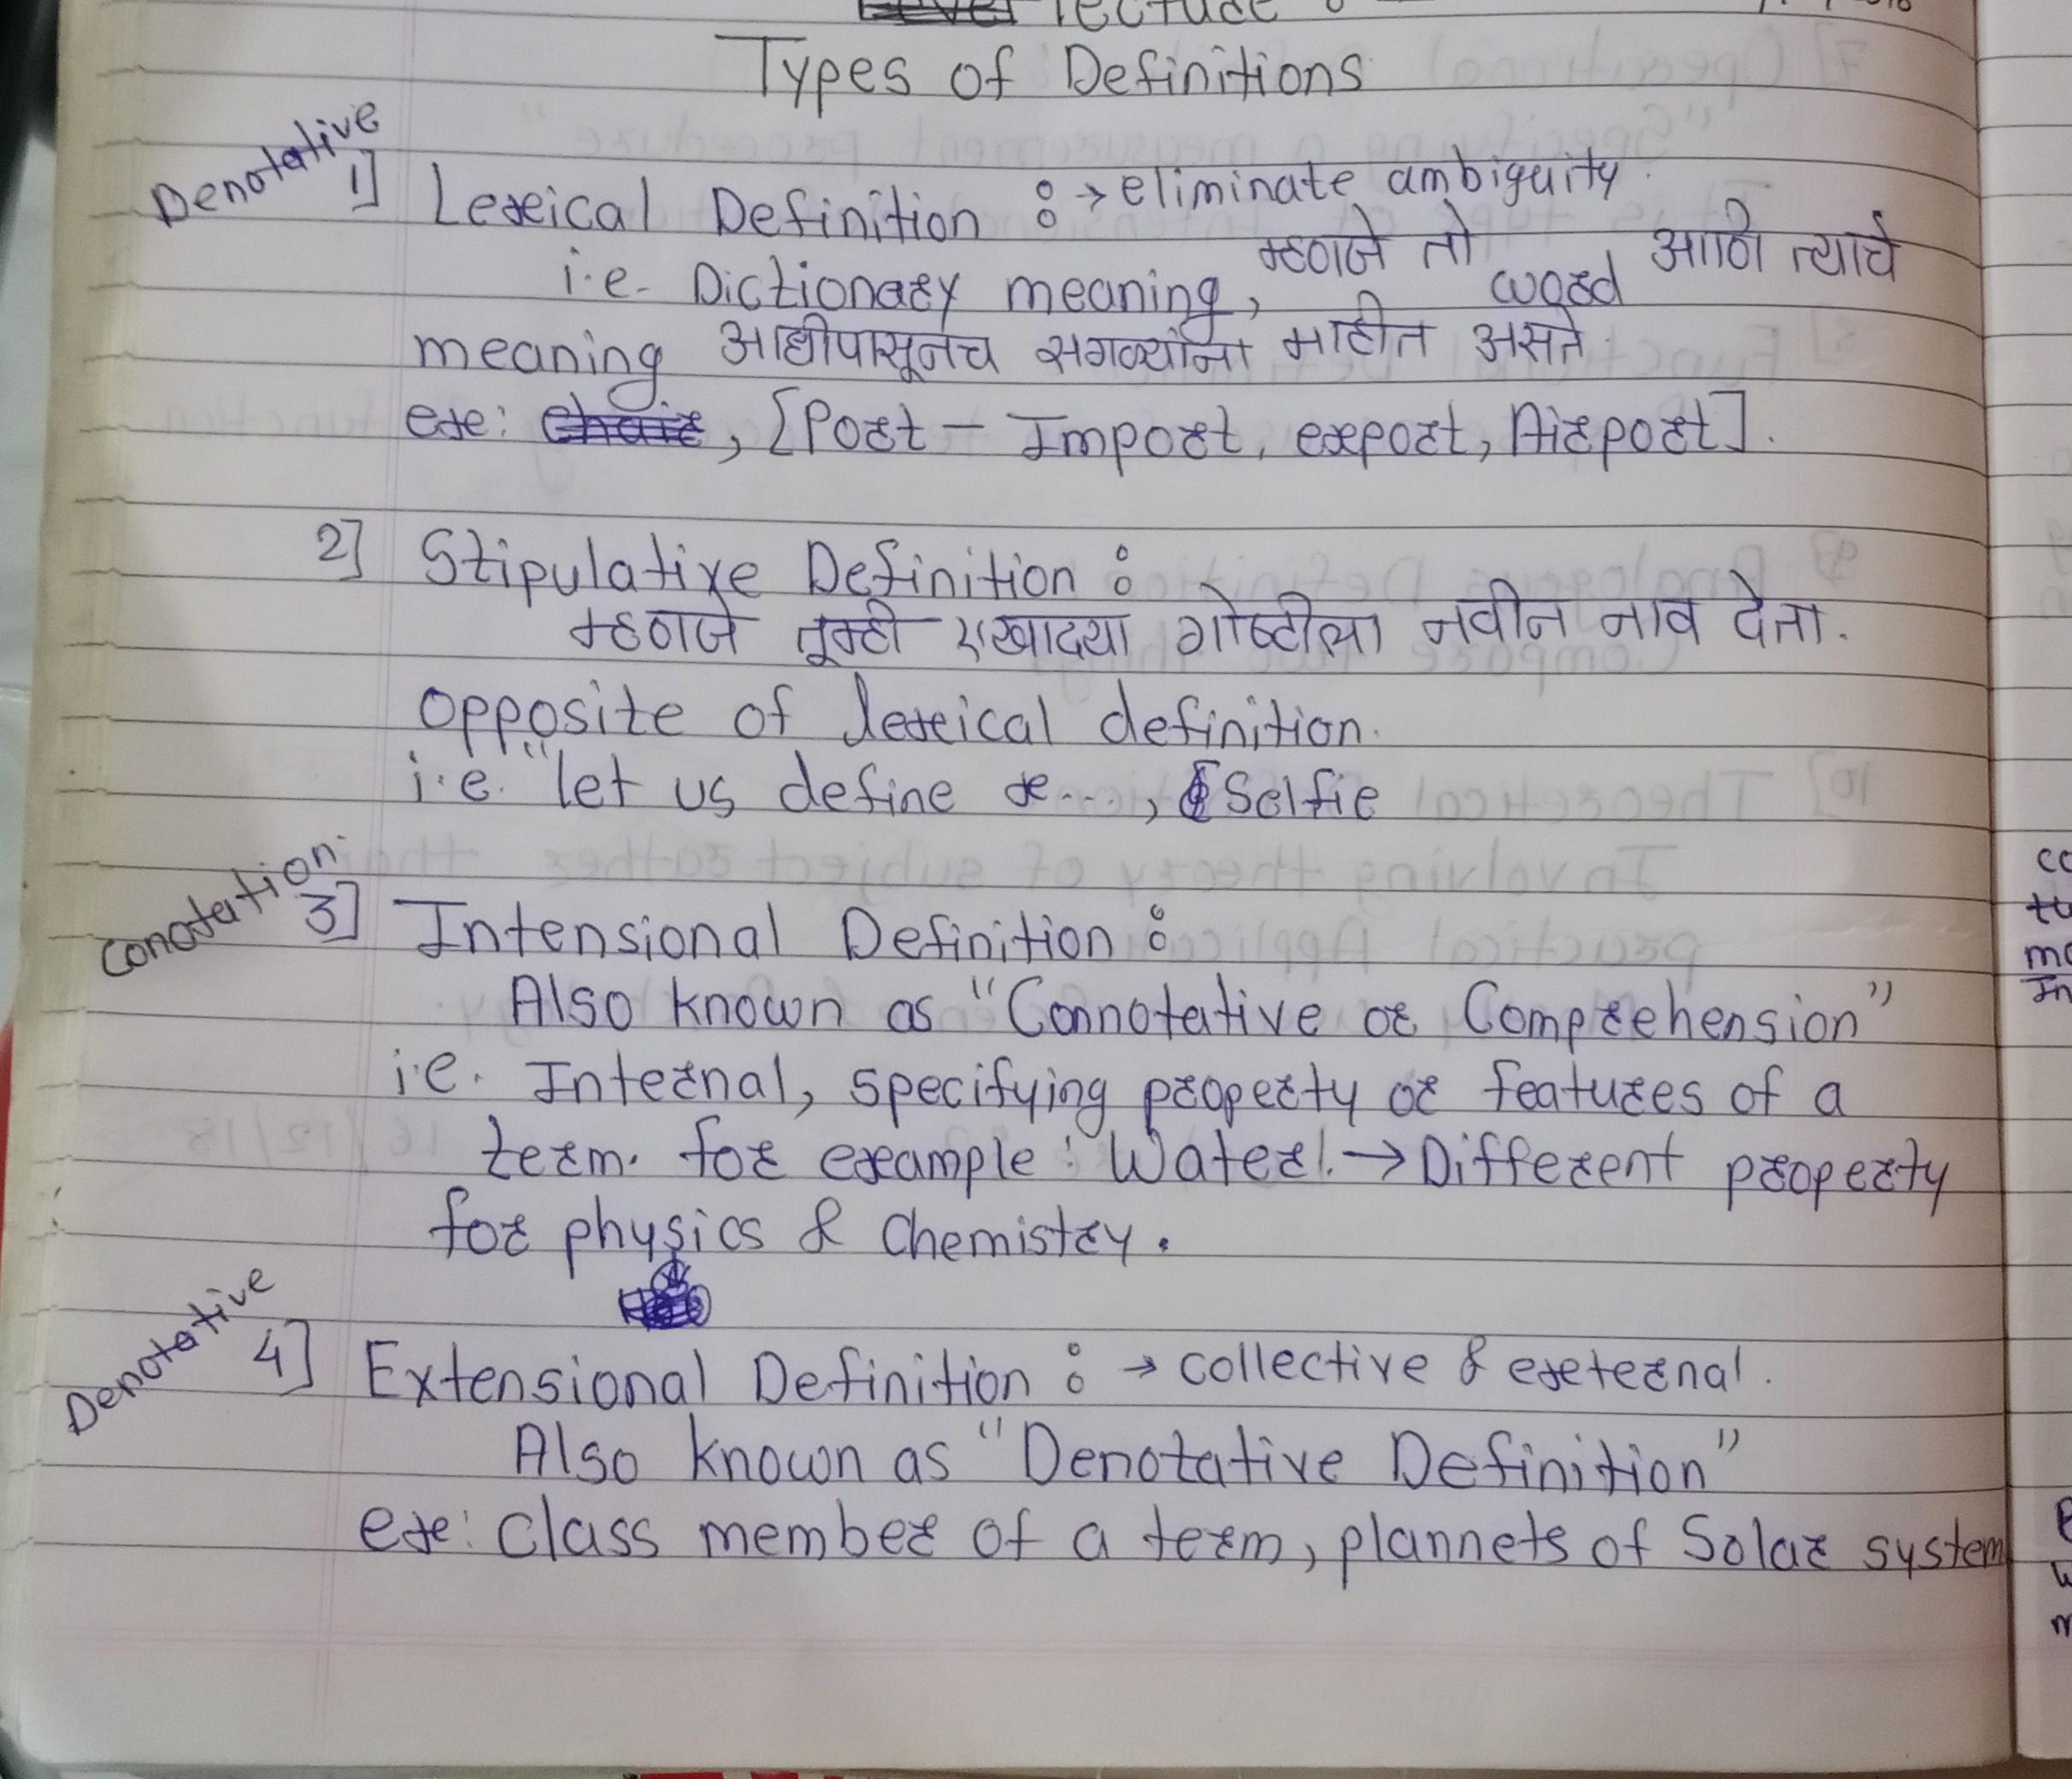 lecture :
Types of Definitions
Denotative
1] Lexical Definition : → eliminate ambiguity.
i.e. Dictionary meaning, म्हणजे तो word आणि त्याचे
meaning आधीपासूनच सगळ्यांना माहीत असते.
ex: chair, [Port - Import, export, Airport].
2] Stipulative Definition :
म्हणजे तूम्ही एखादया गोष्टीला नवीन नाव देता.
opposite of lexical definition.
i.e. "let us define x..., Selfie
Conotation.
3] Intensional Definition :
Also known as "Connotative or Comprehension"
i.e. Internal, specifying property or features of a
term. for example : Water. → Different property
for physics & Chemistry.
Denotative
4] Extensional Definition : → collective & external.
Also known as "Denotative Definition"
ex: class member of a term, plannets of Solar system